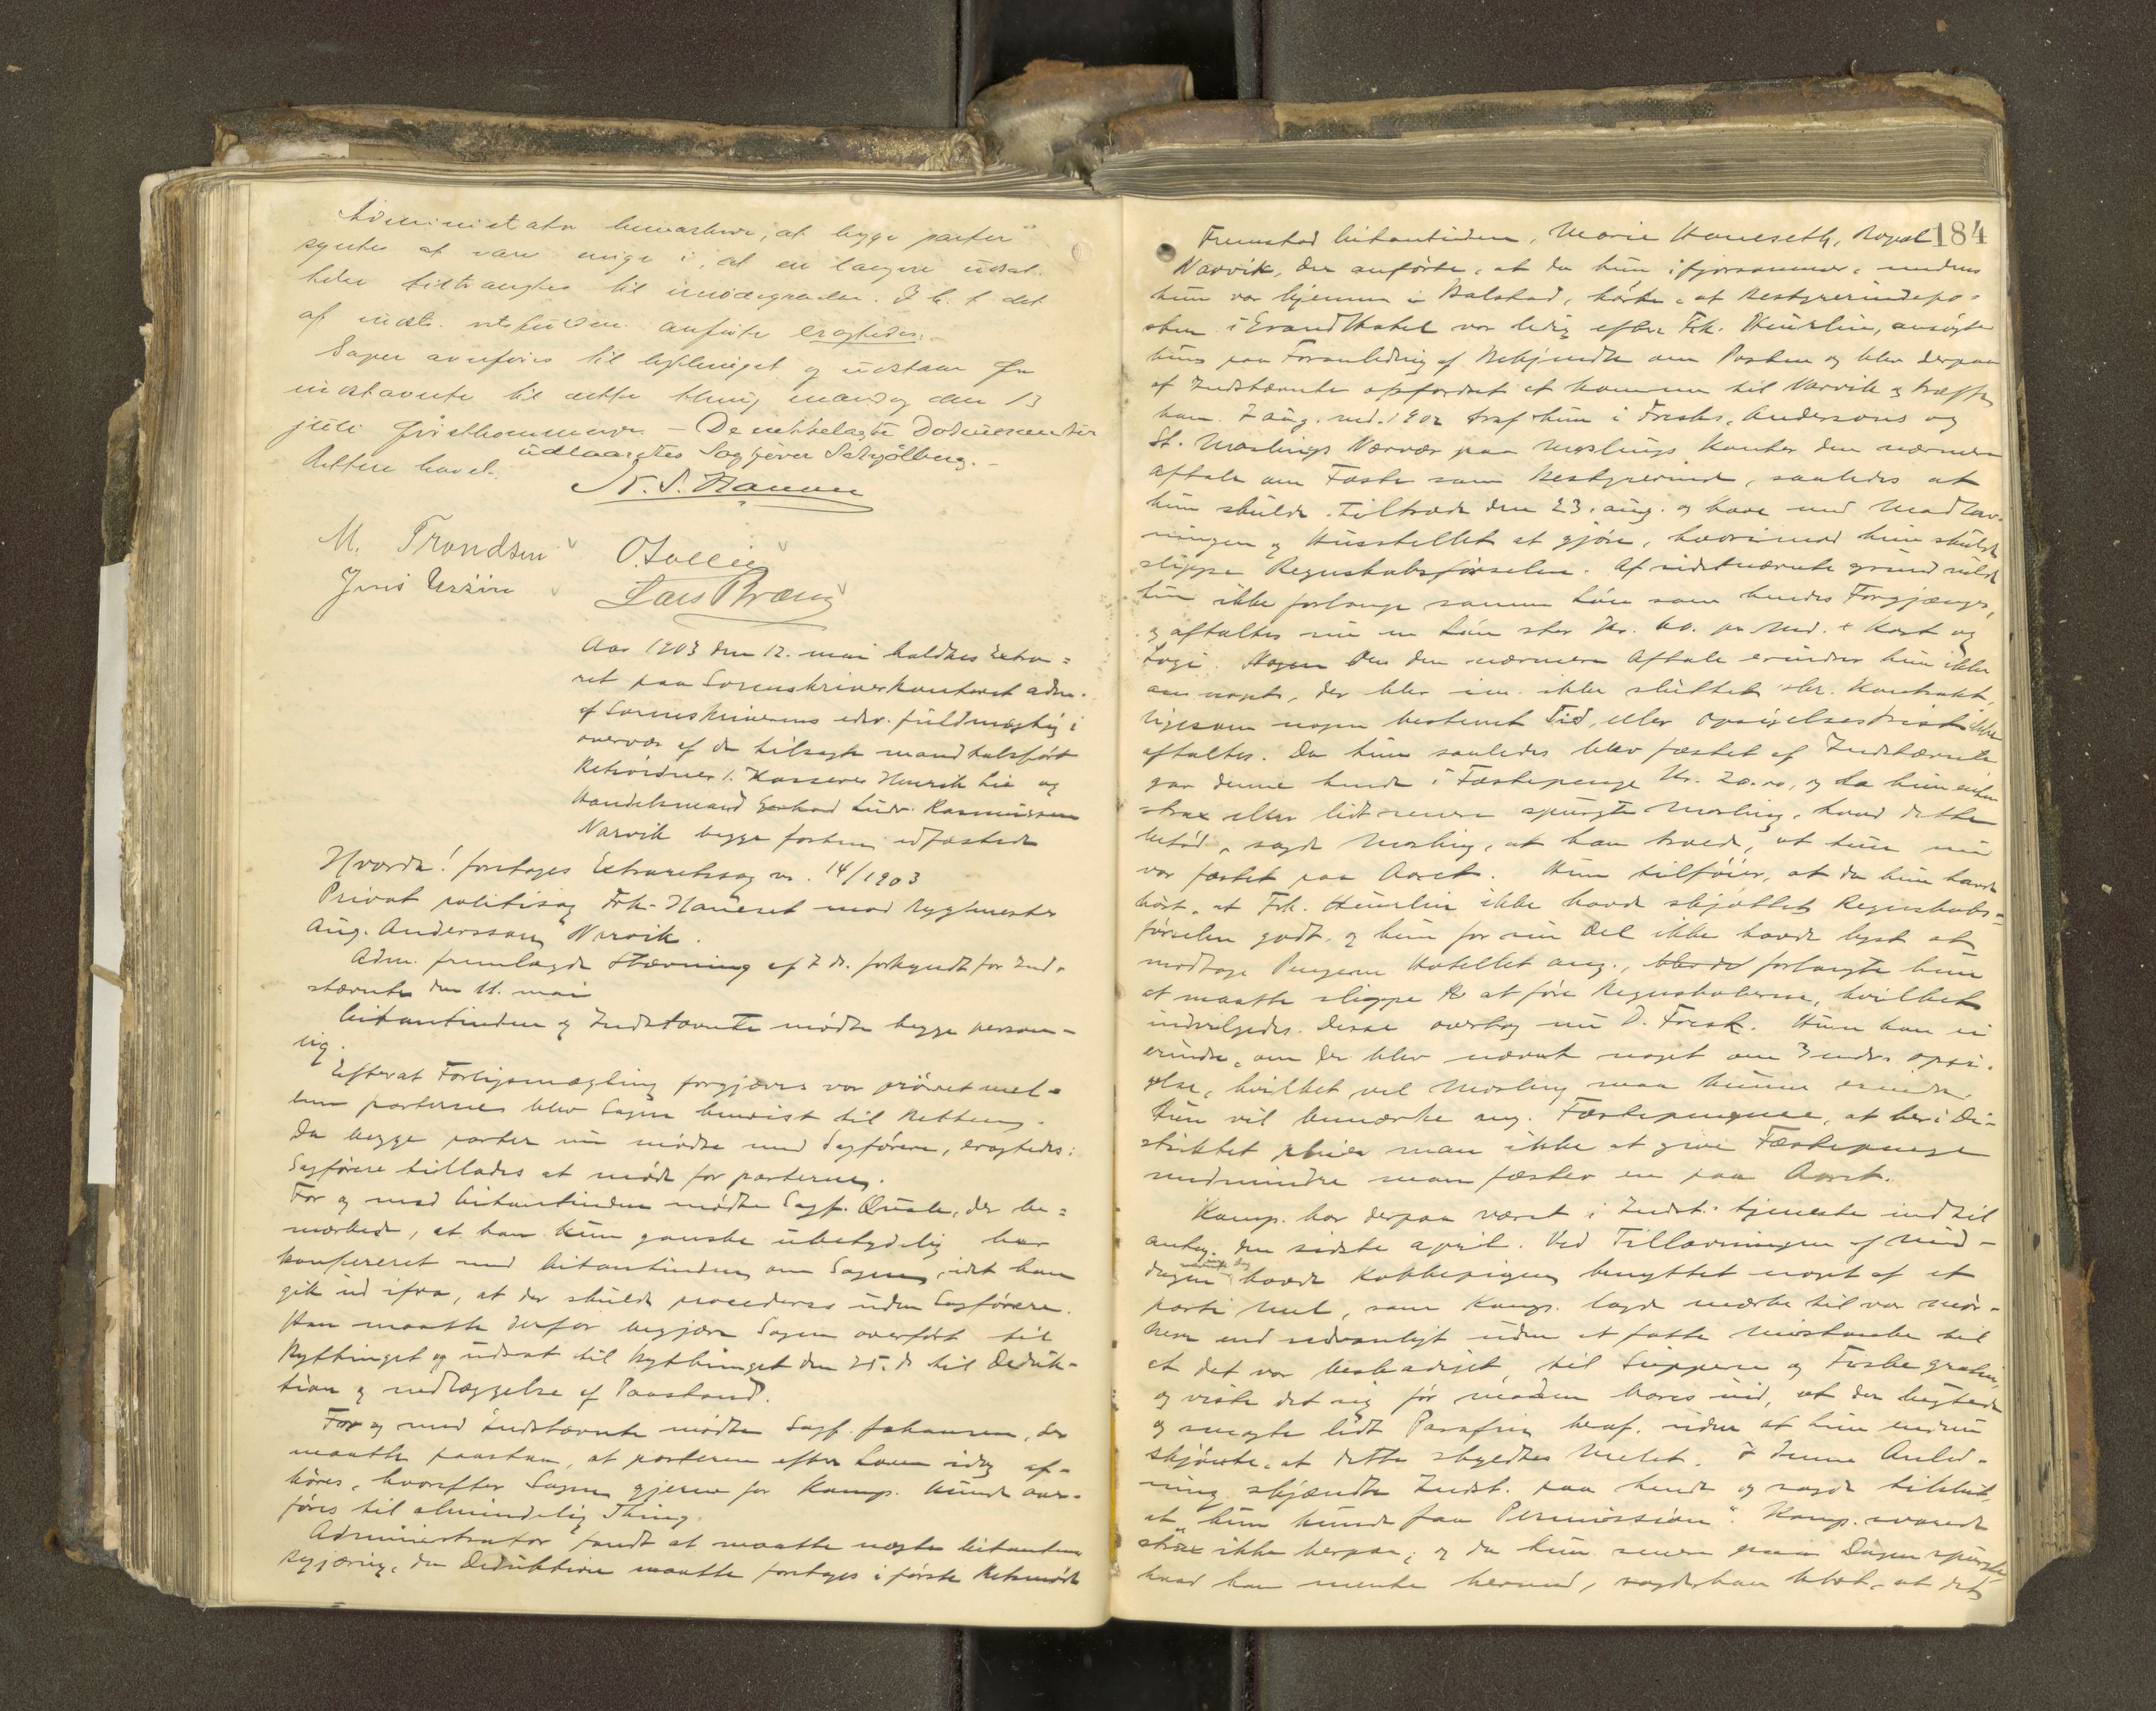 Administrator bemærkede, at begge parter
syntes at være enige i, at en længere udsæt-
telse tiltrængtes til imødegaaelse. I h. t. det
af indst. anførte eragtedes:
Sagen overføres til bythinget og udstaar for
indstævnte til dette thing mandag den 13
juli førstkommende. - De fremlagte Documenter
udlaantes Sagfører Schjölberg. -
Retten hævet.
M. Trondsen O. Sollie
Jens Lars Bræng
Aar 1903 den 12. mai holdtes Extra=
ret paa Sorenskriverkontoret adm.
af Sorenskriverens edsv. fuldmægtig i
overvær af de tilsagte mandtalsført
Retsvidner 1. Kasserer Henrik Lie og
Handelsmand Gerhard Ludv. Rasmussen
Narvik begge forhen edfæstede
Hvorda! foretoges Extraretssag nr. 14/1903
Privat politisag Frk. Haneset mod Bygmester
Aug. Andersson, Narvik.
Adm. fremlagde Stævning af 7 ds. forkyndt for Ind-
stævnte den 11. mai
Citantinden og Indstævnte mødte begge person-
lig.
Efterat Forligsmægling forgjæves var prövet mel-
lem parterne blev Sagen henvist til Retten.
Da begge parter nu mødte med Sagförere, eragtedes:
Sagförere tillades at möde for parterne.
For og med Citantinden mødte Sagf. Quale, der be=
mærkede, at han kun ganske ubetydelig har
konfereret med Citantinden om Sagen, idet han
gik ud ifra, at der skulde procederes uden Sagförere.
Han maatte derfor begjære Sagen overført til
Bythinget og udsat til bythinget den 25. ds til Deduk-
tion og nedlæggelse af Paastand.
For og med Indstævnte mødte Sagf. Johansen, der
maatte paastaa, at parterne efter Loven idag af-
höres, hvorefter Sagen gjerne for Komp. kunde over-
føres til almindelig Thing.
Administrator fandt at maatte nægte Citantens
Begjæring, da Deduktion maatte foretages i første Retsmöde
184
Fremstod Citantinden, Marie Haneseth, Royal
Narvik, der anförte, at da hun ifjorsommer, medens
hun var hjemme i Balstad, hørte, at Bestyrerindepo-
sten i Grand Hotel var ledig efter Frk. Heurlin, ansøgte
hun paa Foranledning af Bekjendte om Posten og blev derpaa
af Indstævnte opfordret at komme til Narvik og træffe
ham. 7 aug. 1902 traf hun i Fresks, Anderssons og
St. Moslings Nærvær paa Moslings Kontor den nærmere
Aftale om Fæste som Bestyrerinde, saaledes at
hun skulde tiltræde den 23. aug. og have med Madlav-
ningen og Husstellet at gjöre, hvorimod hun skulde
slippe Regnskabsförselen. Af sidstnævnte grund vilde
hun ikke forlange samme Løn som hendes Forgjænger,
og aftaltes nu en Løn stor Kr. 60. pr. Md. + Kost og
Logi. Den nærmere Aftale erindrer hun ikke
om noget, der blev ikke sluttet skr. Kontrakt,
ligesom nogen bestemt Tid, eller opsigelsesfrist ikke
aftaltes. Da hun saaledes blev fæstet af Indstævnte
gav denne hende i Fæstepenge Kr. 20.00, og da hun enten
strax eller lidt senere spurgte Mosling, hvad dette
betöd, sagde Mosling, at han troede, at hun nu
var fæstet paa Aaret. Hun tilföier, at da hun havde
hört, at Frk. Heurlin ikke havde skjöttet Regnskabs-
förselen godt, og hun for sin Del ikke havde lyst at
modtage Pengene Hotellet ang., forlangte hun
at maatte slippe at före Regnskaberne, hvilket
indvilgedes. Disse overtog nu D. Fresk. Hun kan ei
erindre, om der blev nævnt noget om 3 mdrs. opsi-
gelse, hvilket vel Mosling maa kunne erindre.
Hun vil bemærke ang. Fæstepengene, at her i Di-
striktet pleier man ikke at give Fæstepenge
medmindre man fæster en paa Aaret.
Komp. har derpaa været i Indst. tjeneste indtil
antag. den sidste april. Ved Tillavningen af Mid-
dagen havde Kokkepigen benyttet noget af et
parti Mel, som Komp. lagde mærke til var mör-
kere end sedvanligt uden at fatte Mistanke til
at det var beskadiget, til Suppen og Fiskegratin,
og viste det sig før maden bares ind, at den lugtede
og smagte lidt Parafin heraf, uden at hun endnu
skjönte, at dette skyldtes Melet. I denne Anled-
ning skjændte Indst. paa hende og sagde tilslut,
at "hun kunde faa Permission". Komp. svarede
strax ikke herpaa; og da hun senere paa Dagen spurgte
hvad han mente hermed, sagde han blot, at det